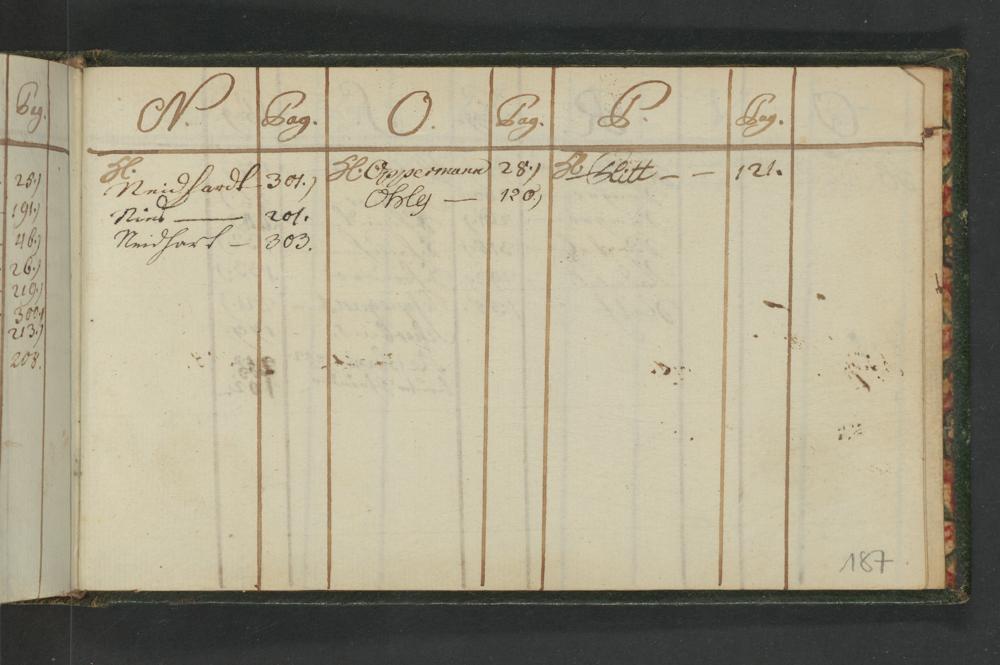 Pag.
25.)
191.)
46.)
26.)
219.)
300.)
213.)
208.
N. Pag. O. Pag. P. Pag.
H. Neidhardt - 301.) H. Oppermann 28.) H. Plitt - - 121.
Ries — 201. Ohly — 120.)
Neidhart - 303.
187